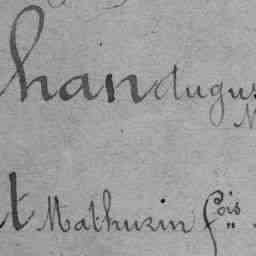 handugus
N
t Mathurin fois